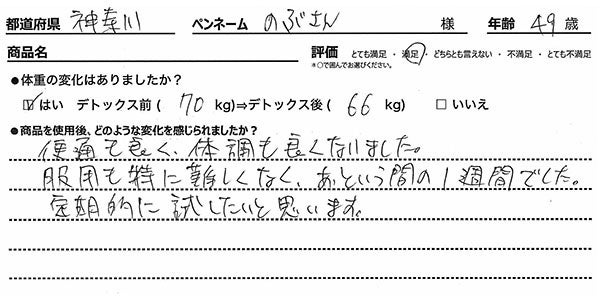 都道府県 神奈川 ペンネーム のぶさん 様 年齢 49 歳
商品名 評価 とても満足 ・ 満足 ・ どちらとも言えない ・ 不満足 ・ とても不満足
*○で囲んでお選びください。
●体重の変化はありましたか?
☑ はい デトックス前 ( 70 kg)⇒デトックス後 ( 66 kg) □ いいえ
●商品を使用後、どのような変化を感じられましたか?
便通も良く、体調も良くなりました。
服用も特に難しくなく、あっという間の1週間でした。
定期的に試したいと思います。